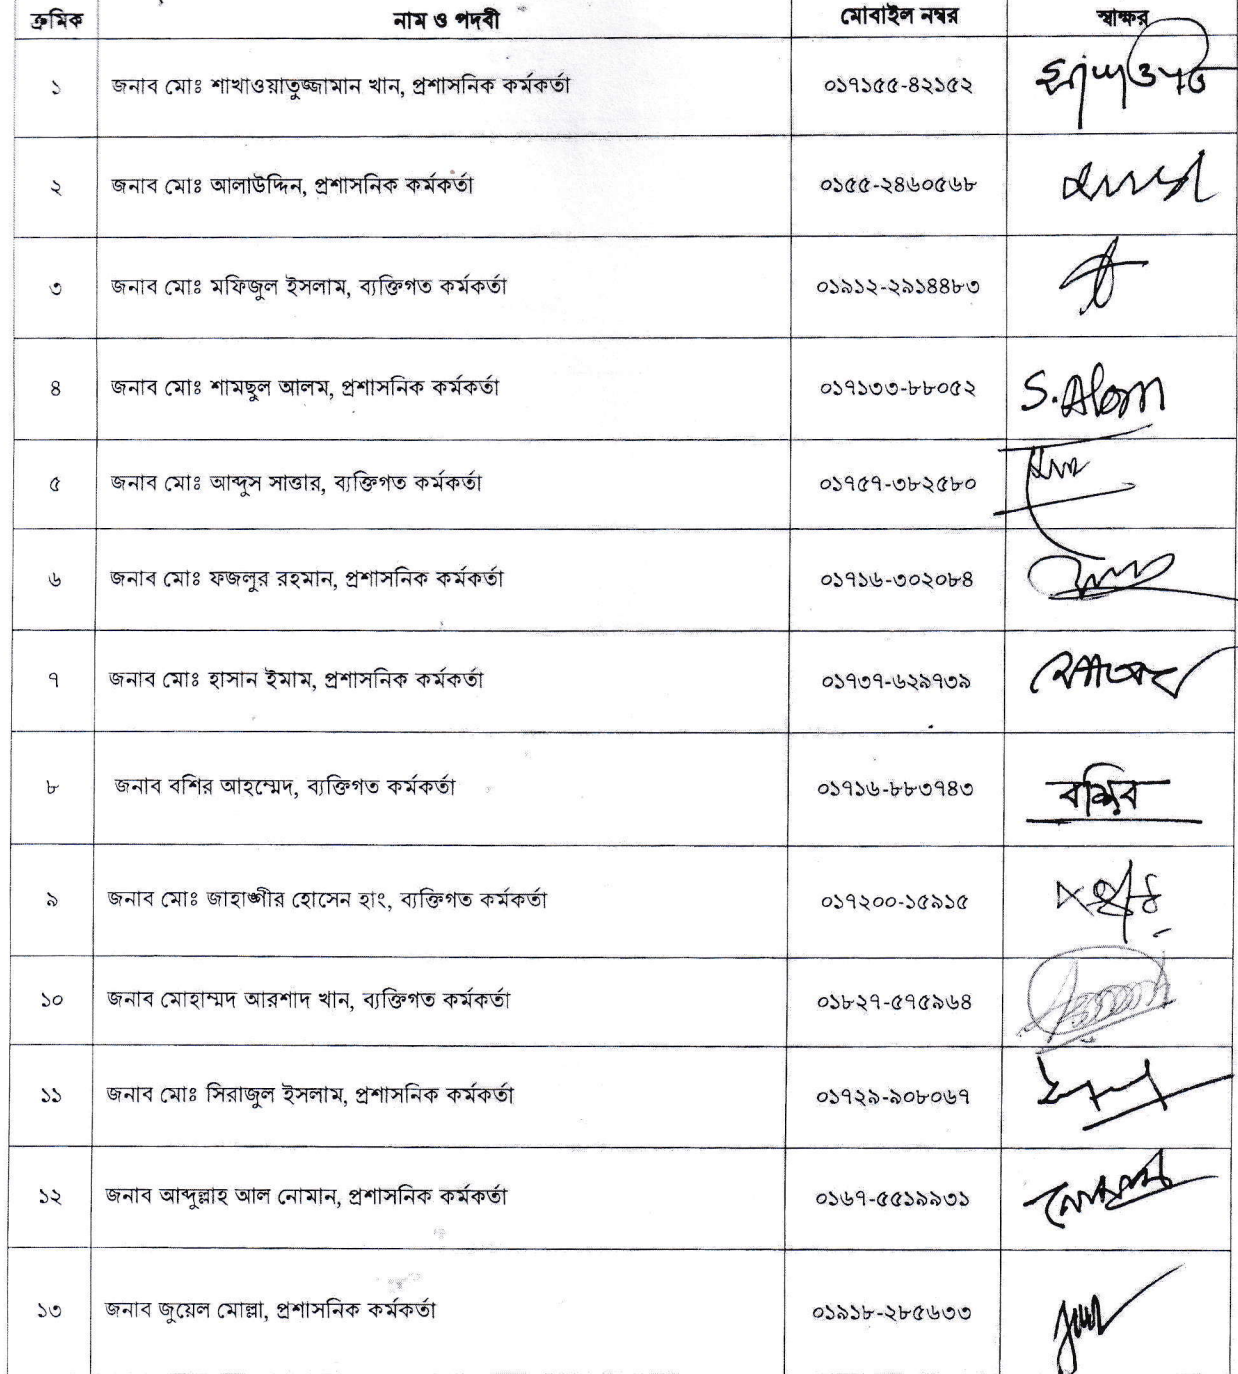 ক্রমিক নাম ও পদবী মোবাইল নম্বর স্বাক্ষর
১ জনাব মোঃ শাখাওয়াতুজ্জামান খান, প্রশাসনিক কর্মকর্তা ০১৭১৫৫-৪২১৫২
২ জনাব মোঃ আলাউদ্দিন, প্রশাসনিক কর্মকর্তা ০১৫৫-২৪৬০৫৬৮
৩ জনাব মোঃ মফিজুল ইসলাম, ব্যক্তিগত কর্মকর্তা ০১৯১২-২৯১৪৪৮৩
৪ জনাব মোঃ শামছুল আলম, প্রশাসনিক কর্মকর্তা ০১৭১৩৩-৮৮০৫২ S. Alam
৫ জনাব মোঃ আব্দুস সাত্তার, ব্যক্তিগত কর্মকর্তা ০১৭৫৭-৩৮২৫৮০
৬ জনাব মোঃ ফজলুর রহমান, প্রশাসনিক কর্মকর্তা ০১৭১৬-৩০২০৮৪
৭ জনাব মোঃ হাসান ইমাম, প্রশাসনিক কর্মকর্তা ০১৭৩৭-৬২৯৭৩৯
৮ জনাব বশির আহম্মেদ, ব্যক্তিগত কর্মকর্তা ০১৭১৬-৮৮৩৭৪৩ বশির
৯ জনাব মোঃ জাহাঙ্গীর হোসেন হাং, ব্যক্তিগত কর্মকর্তা ০১৭২০০-১৫৯১৫
১০ জনাব মোহাম্মদ আরশাদ খান, ব্যক্তিগত কর্মকর্তা ০১৮২৭-৫৭৫৯৬৪
১১ জনাব মোঃ সিরাজুল ইসলাম, প্রশাসনিক কর্মকর্তা ০১৭২৯-৯০৮০৬৭
১২ জনাব আব্দুল্লাহ আল নোমান, প্রশাসনিক কর্মকর্তা ০১৬৭-৫৫১৯৯৩১
১৩ জনাব জুয়েল মোল্লা, প্রশাসনিক কর্মকর্তা ০১৯১৮-২৮৫৬৩৩